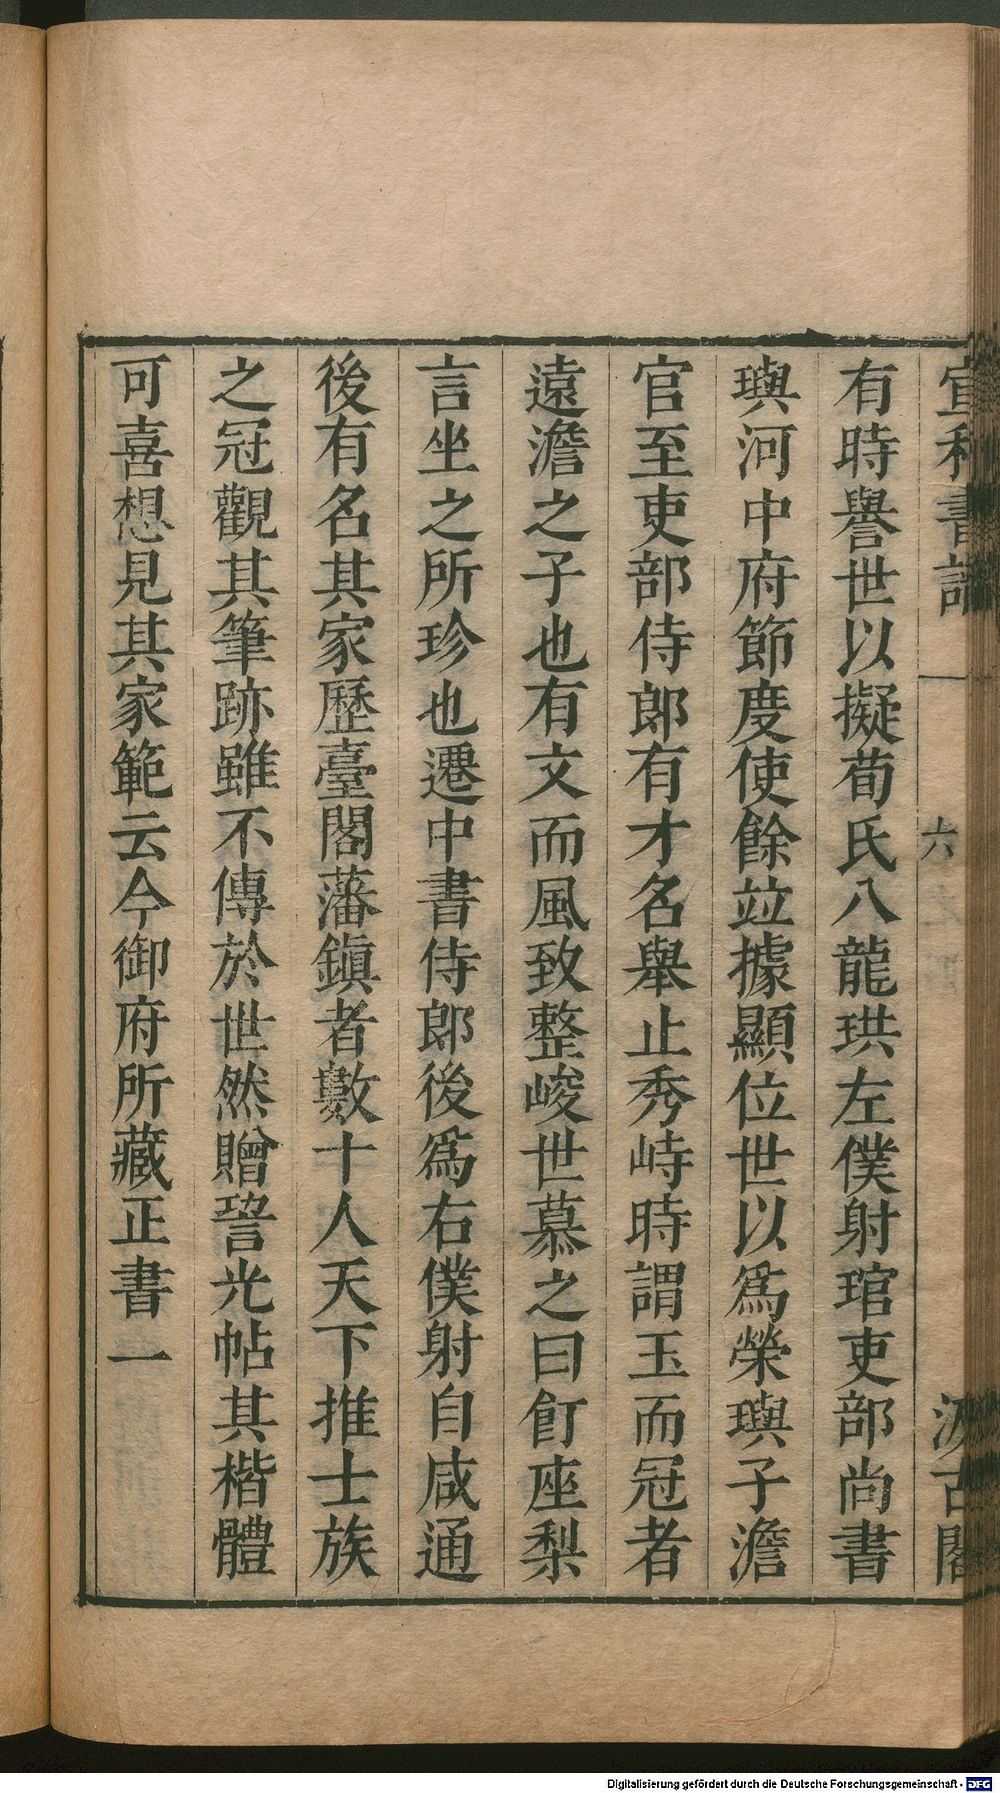 宣和書譜 六 汲古閣
有時譽世以擬荀氏八龍珙左僕射琯吏部尚書
璵河中府節度使餘竝據顯位世以爲榮璵子澹
官至吏部侍郎有才名舉止秀峙時謂玉而冠者
遠澹之子也有文而風致整峻世慕之曰飣座梨
言坐之所珍也遷中書侍郎後爲右僕射自咸通
後有名其家歷臺閣藩鎭者數十人天下推士族
之冠觀其筆跡雖不傳於世然贈㕡光帖其楷體
可喜想見其家範云今御府所藏正書一
Digitalisierung gefördert durch die Deutsche Forschungsgemeinschaft - DFG